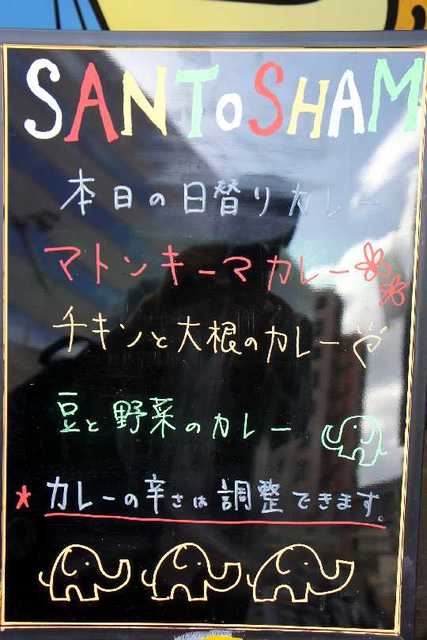 SANToSHAM
本日の日替りカレー
マトンキーマカレー
チキンと大根のカレー
豆と野菜のカレー
★カレーの辛さは調整できます。